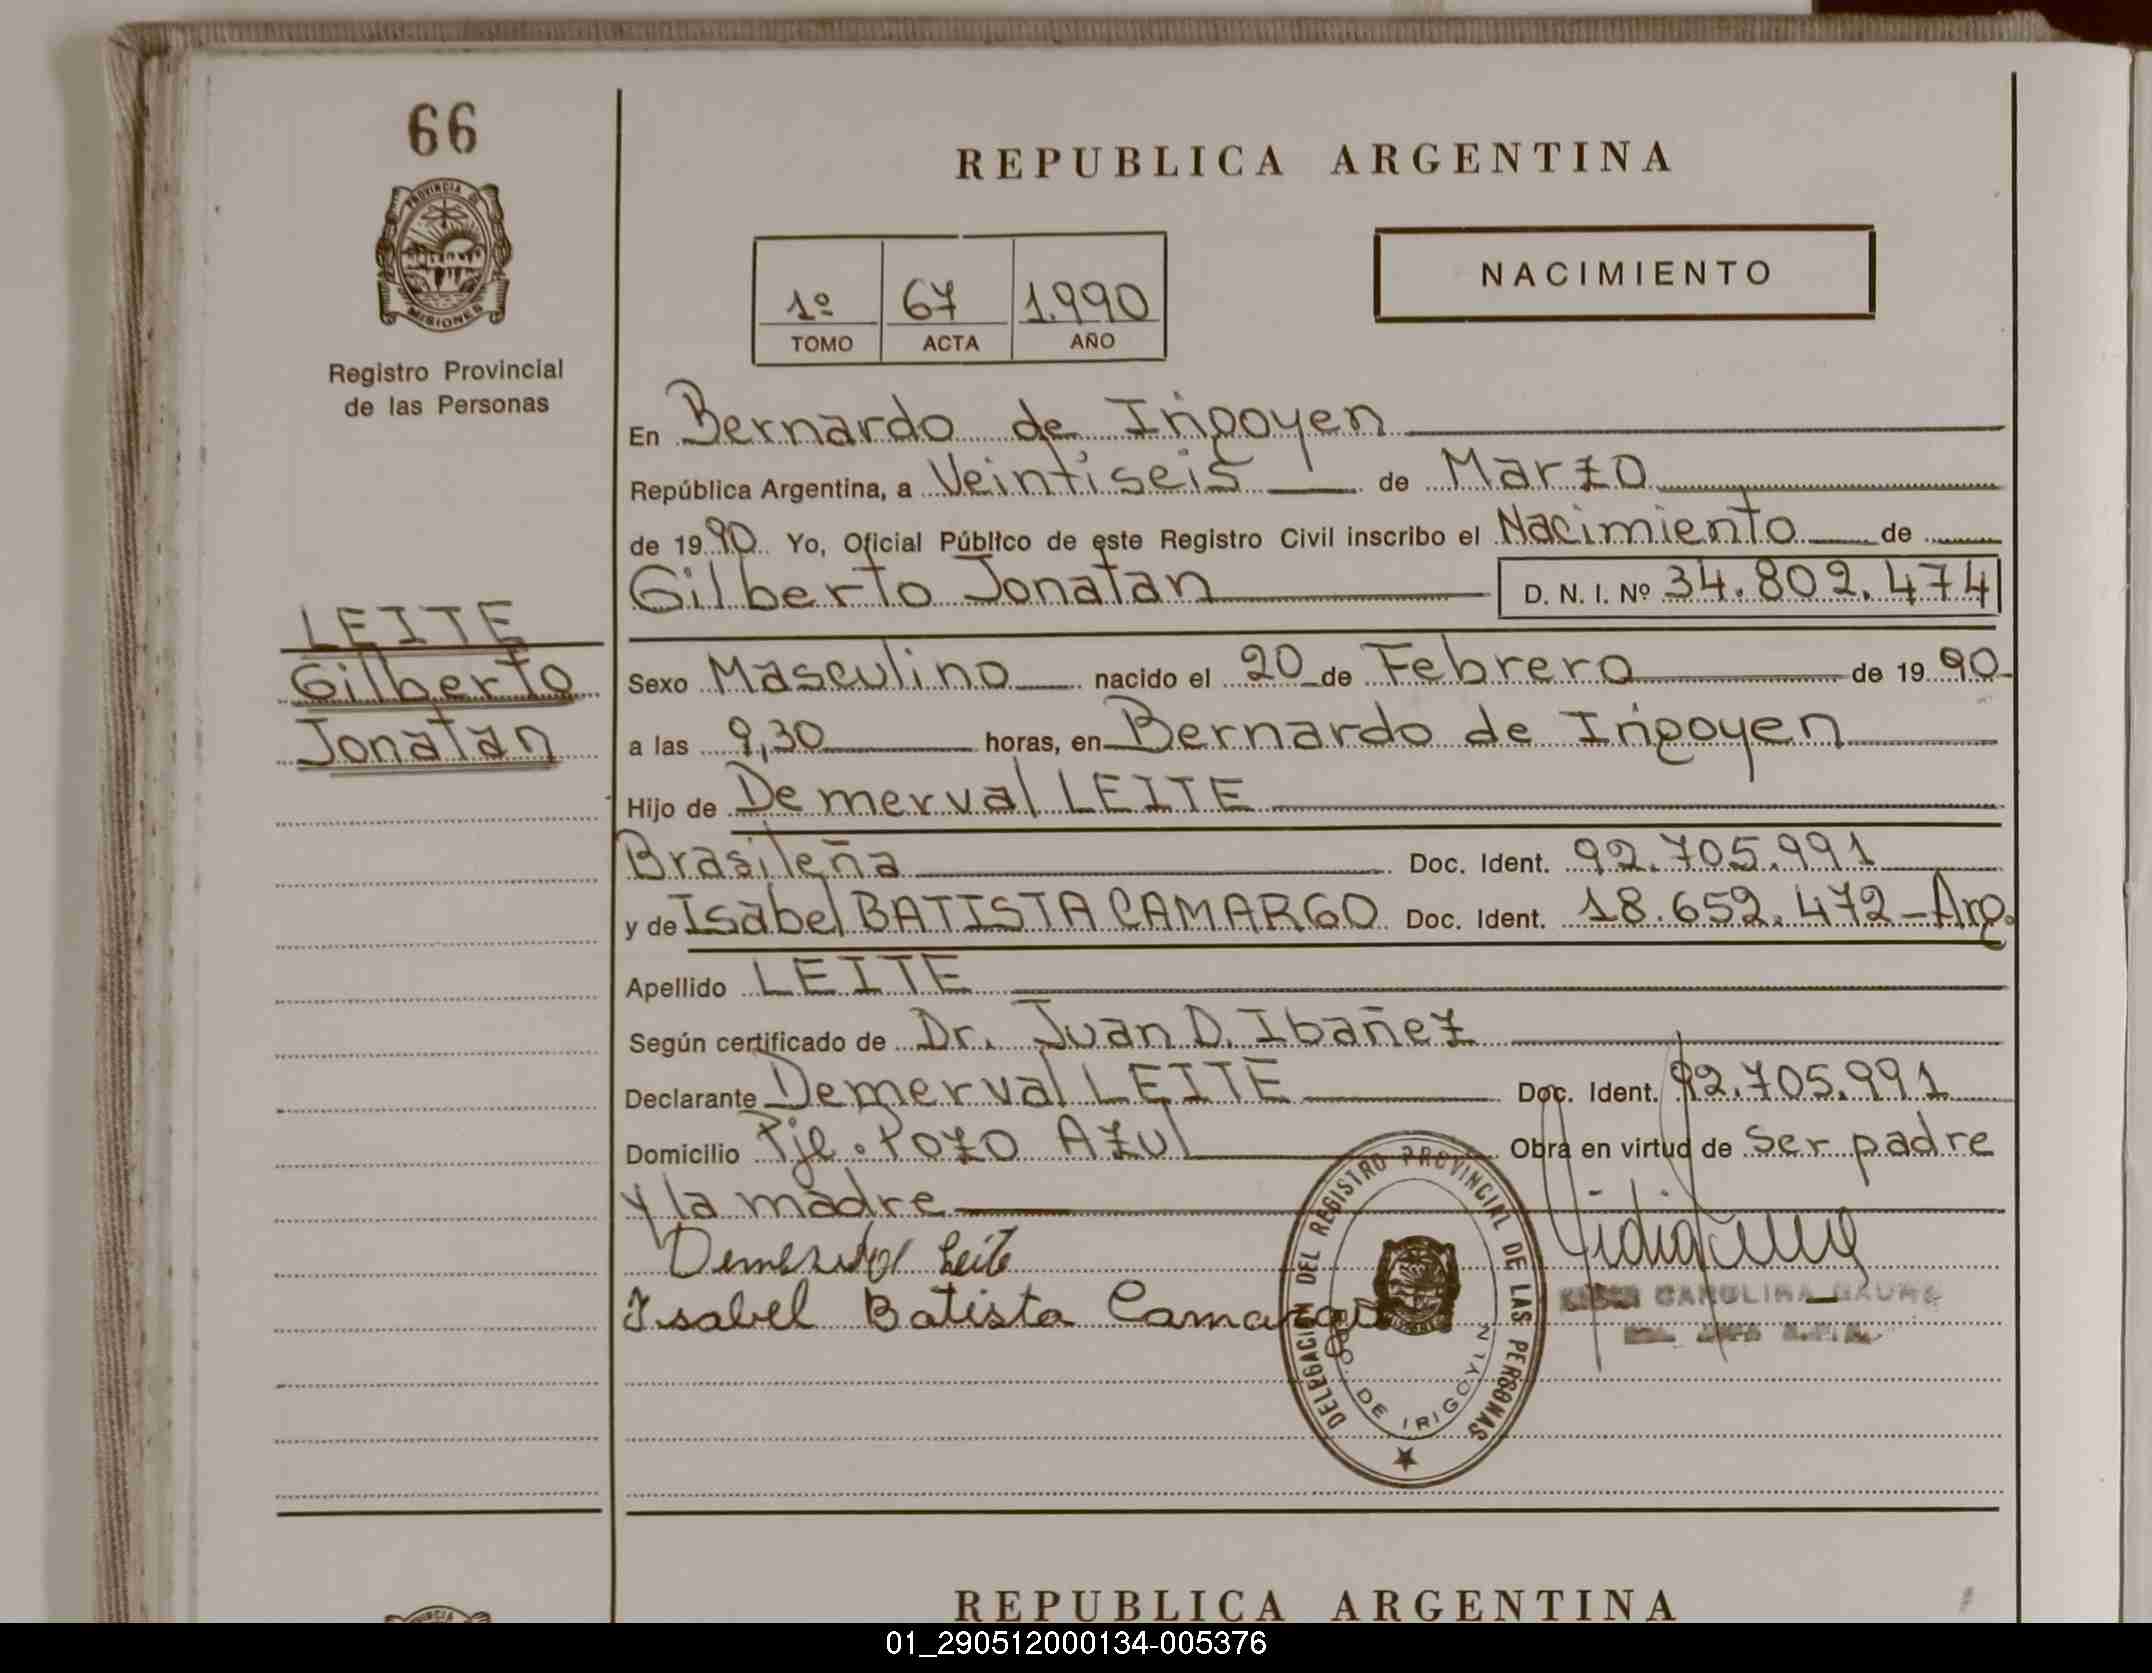 66
PROVINCIA DE
MISIONES
Registro Provincial
de las Personas
LEITE
Gilberto
Jonatan
REPUBLICA ARGENTINA
1º 67 1.990
TOMO ACTA AÑO
NACIMIENTO
En Bernardo de Irigoyen
República Argentina, a Veintiseis de Marzo
de 1990 Yo, Oficial Público de este Registro Civil inscribo el Nacimiento de
Gilberto Jonatan D. N. I. Nº 34.802.474
Sexo Masculino nacido el 20 de Febrero de 1990
a las 9,30 horas, en Bernardo de Irigoyen
Hijo de Demerval LEITE
Brasileña Doc. Ident. 92.705.991
y de Isabel BATISTA CAMARGO Doc. Ident. 18.652.472-Arg.
Apellido LEITE
Según certificado de Dr. Juan D. Ibañez
Declarante Demerval LEITE Doc. Ident. 92.705.991
Domicilio Pje. Pozo Azul Obra en virtud de ser padre
y la madre
Demerval Leite
Isabel Batista Camargo
DELEGACION DEL REGISTRO PROVINCIAL DE LAS PERSONAS
BDO. DE IRIGOYEN
CAROLINA
REPUBLICA ARGENTINA
01_290512000134-005376